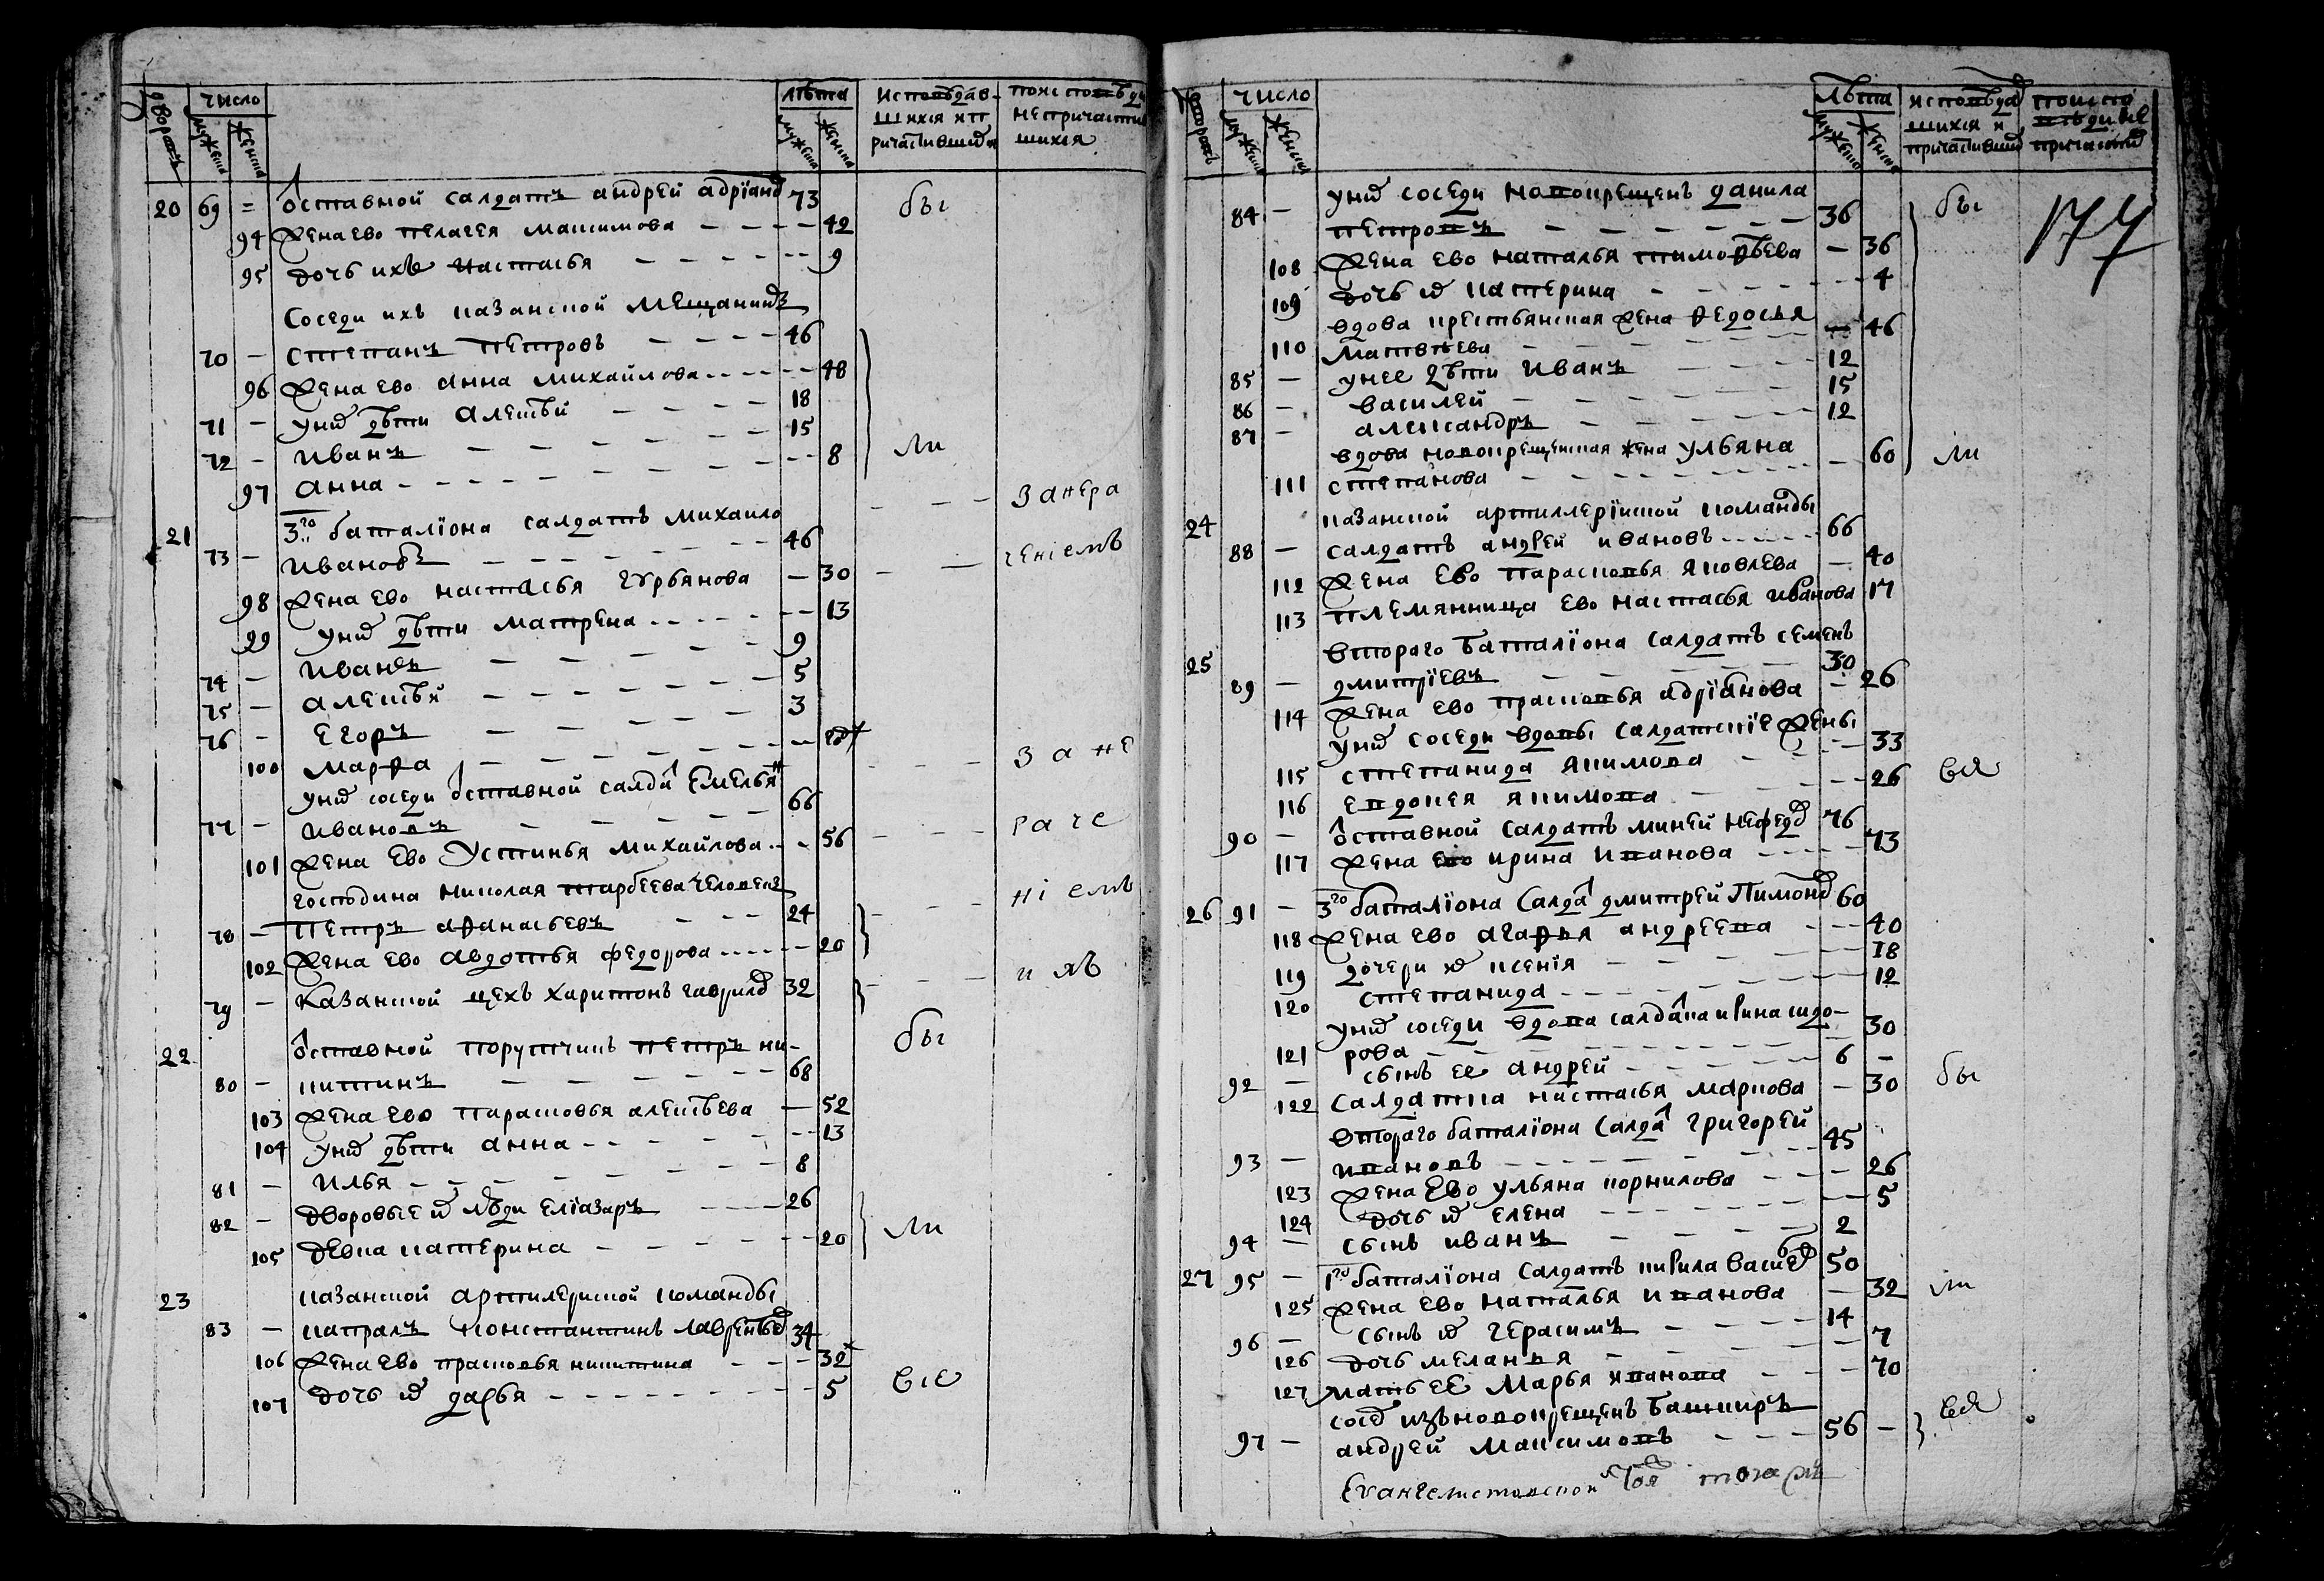 дворовъ число лѣта исповѣдав- поисповѣди
мужеска женска мужеска женска шихся ип непричасти
ричастившихся шихся
20 69 = ѿставной салдатъ андрей адрїанов 73 бы
94 жена ево пелагея максимова — — — — 42
95 дочь ихъ настасья — — — — — 9
Соседи ихъ казанской мещанинъ
70 — степанъ петровъ — — — — 46
96 жена ево анна михайлова — — — 48
71 — унихъ дѣти алексѣй — — — — 18
72 — иванъ — — — — — — 15
97 анна — — — — — — — 8 ли
21 3го баталїона салдатъ михаило — — — занера
73 — ивановъ — — — — — — 46
98 жена ево настасья гурьянова — 30 — — ченіемъ
99 унихъ дѣти матрена — — — — — 13
74 — иванъ — — — — — 9
75 — алексѣй — — — — — — 5
76 — егоръ — — — — — 3
100 марфа — — — — — — —
унихъ соседи ѿставной салдат емельян — — — зане
77 — ивановъ — — — — — 66
101 жена ево Устинья михайлова — — 56 — — — раче
господина николая тарбеева человекъ
78 — петръ афанасьевъ — — — 24 — — — ніемъ
102 жена ево авдотья федорова — — — — 20
79 — казанской цехъ харитонъ гаврилов 32 — — — ихъ
22 ѿставной порутчикъ петръ ни- бы
80 — китинъ — — — — — — 68
103 жена ево парасковья алексѣева — 52
104 унихъ дѣти анна — — — — — — 13
81 — илья — — — — — — — 8
82 — дворовые их люди еліазаръ — — — 26
105 девка катерина — — — — — — 20 ли
23 казанской артилериской команды
83 — капралъ константинъ лаврентьев 34
106 жена ево прасковья никитина — — — 32
107 дочь их дарья — — — — — — — 5 все
дворовъ число лѣта исповѣдав поиспо
мужеска женска мужеска женска шихся и вѣди не
причастивших причастив
177
унихъ соседи новокрещенъ данила бы
84 — петровъ — — — — — — 36
108 жена ево наталья тимофѣева — 36
109 дочь их катерина — — — — — — 4
вдова крестьянская жена федосья
110 матвѣева — — — — — — 46
85 — унее дѣти иванъ — — — 12
86 — василей — — — — — — 15
87 — александръ — — — — — 12
вдова новокрещенская жена ульяна
111 степанова — — — — — — — 60 ли
24 казанской артиллерїиской команды
88 — салдатъ андрей ивановъ — — — 66
112 жена ево парасковья яковлева — 40
113 племянница ево настасья иванова 17
25 втораго баталїона салдатъ семенъ
89 — дмитрїевъ — — — — — 30
114 жена ево прасковья адрїанова — 26
унихъ соседи вдовы салдатскїе жены
115 степанида якимова — — — — 33
116 евдокея якимова — — — — — 26 вся
90 — ѿставной салдатъ миней нефед 76
117 жена ево ирина иванова — — — — 73
26 91 — 3го баталїона салдат дмитрей Пимонов 60
118 жена ево агафья андреева — — — 40
119 дочери их ксенїя — — — — — — 18
120 степанида — — — — — — — 12
унихъ соседи вдова салдатка ирина сидо-
121 рова — — — — — — — — 30
92 — сынъ ее андрей — — — — — 6 —
122 салдатка настасья маркова — 30 бы
втораго баталїона салдат григорей
93 — ивановъ — — — — — — — 45
123 жена ево ульяна корнилова — — — 26
124 дочь их елена — — — — — — — 5
94 — сынъ иванъ — — — — — 2
27 95 — 1го баталїона салдатъ кирила васильев 50
125 жена ево наталья иванова — 32 ли
96 — сынъ их герасимъ — — — — 14
126 дочь меланья — — — — — — 7
127 мать ее марья иванова — — — 70
сосед изъновокрещенъ башкиръ
97 — андрей максимовъ — — — 56 — вся
Евангелистовской